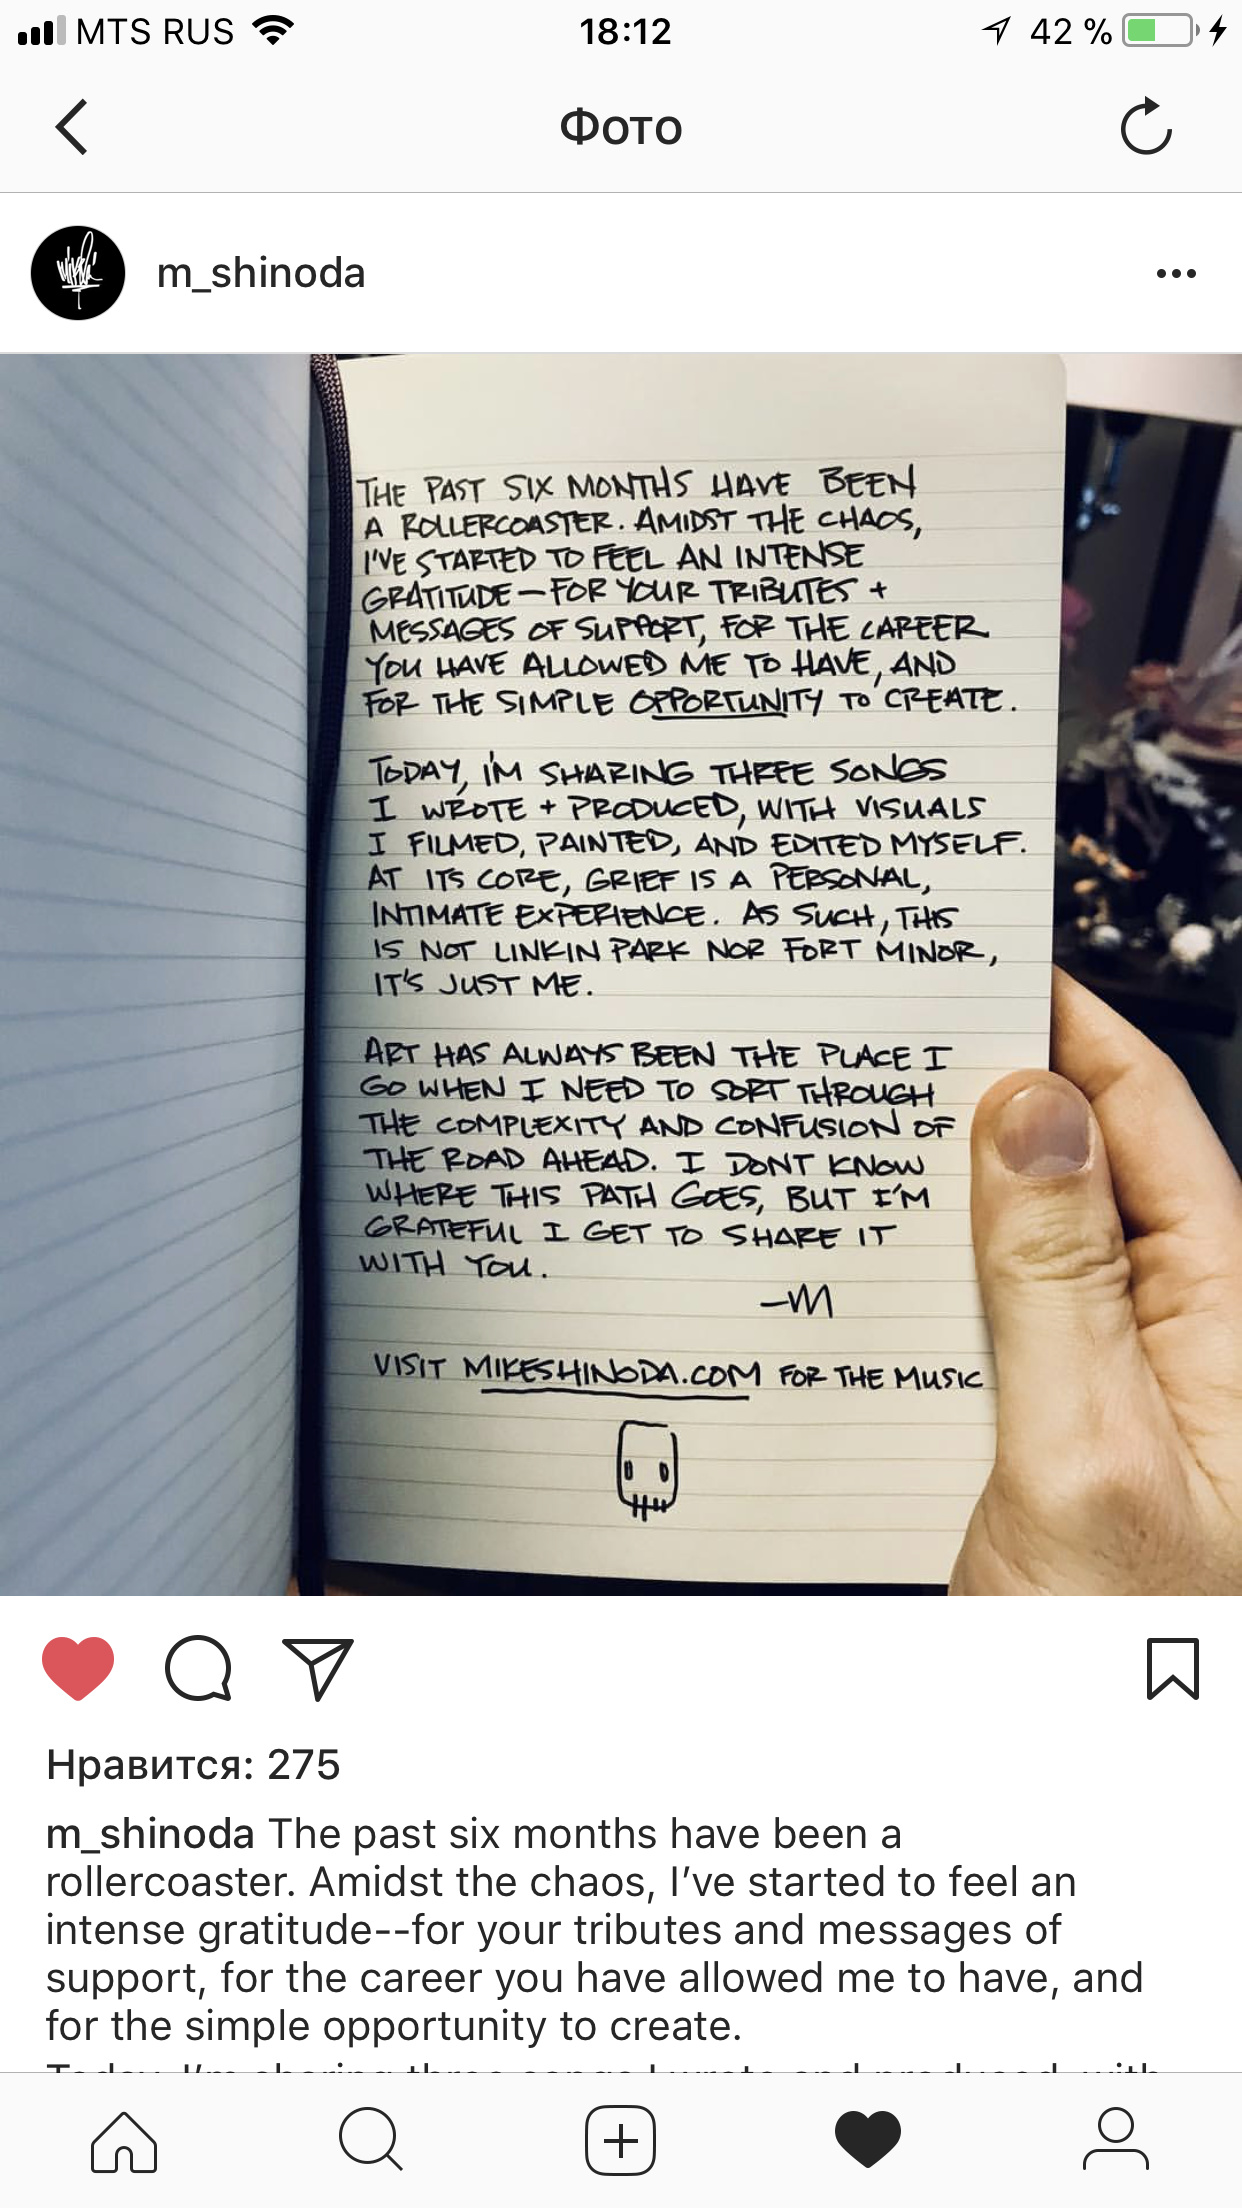 MTS RUS
18:12
42 %
Фото
m_shinoda
THE PAST SIX MONTHS HAVE BEEN
A ROLLERCOASTER. AMIDST THE CHAOS,
I'VE STARTED TO FEEL AN INTENSE
GRATITUDE—FOR YOUR TRIBUTES +
MESSAGES OF SUPPORT, FOR THE CAREER
YOU HAVE ALLOWED ME TO HAVE, AND
FOR THE SIMPLE OPPORTUNITY TO CREATE.
TODAY, I'M SHARING THREE SONGS
I WROTE + PRODUCED, WITH VISUALS
I FILMED, PAINTED, AND EDITED MYSELF.
AT ITS CORE, GRIEF IS A PERSONAL,
INTIMATE EXPERIENCE. AS SUCH, THIS
IS NOT LINKIN PARK NOR FORT MINOR,
IT'S JUST ME.
ART HAS ALWAYS BEEN THE PLACE I
GO WHEN I NEED TO SORT THROUGH
THE COMPLEXITY AND CONFUSION OF
THE ROAD AHEAD. I DON'T KNOW
WHERE THIS PATH GOES, BUT I'M
GRATEFUL I GET TO SHARE IT
WITH YOU.
—M
VISIT MIKESHINODA.COM FOR THE MUSIC
Нравится: 275
m_shinoda The past six months have been a
rollercoaster. Amidst the chaos, I've started to feel an
intense gratitude--for your tributes and messages of
support, for the career you have allowed me to have, and
for the simple opportunity to create.
Today, I'm sharing three songs I wrote and produced, with